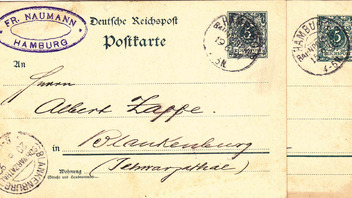 FR. NAUMANN
HAMBURG
Deutsche Reichspost
Postkarte
An
Herrn
Albert Zappe.
in Blankenburg
Wohnung (Schwarzathal)
(Straße und Hausnummer)
HAMBURG
5
HAMBURG
5
BLANKENBURG